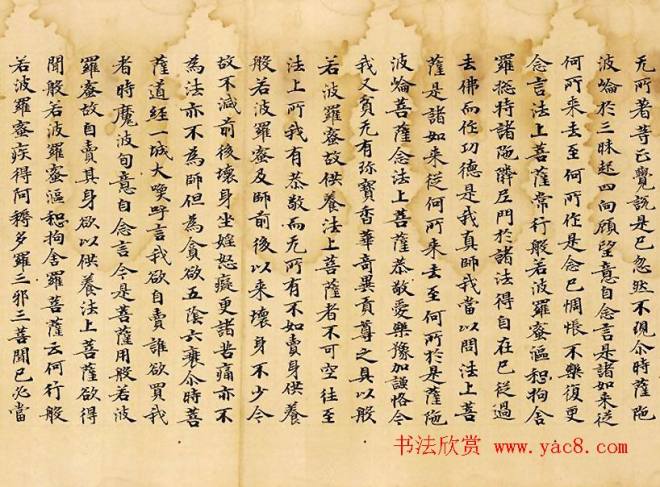 无所著等正覺說是已忽然不現尒時薩陁
波崘於三昧起四向顧望意自念言是諸如来從
何所来去至何所作是念已惆悵不樂復更
念言法上菩薩常行般若波羅蜜漚惒拘舍
羅捴持諸陁隣尼門於諸法得自在已從過
去佛而作功德是我真師我當以問法上菩
薩是諸如来從何所来去至何所於是薩陁
波崘菩薩念法上菩薩恭敬愛樂豫加謙恪今
我又貧无有珎寶香華奇異貢尊之具以般
若波羅蜜故供養法上菩薩者不可空往至
法上所我有恭敬而无所有不如賣身供養
般若波羅蜜及師前後以来壞身不少今
故不減前後壞身坐婬怒癡更諸苦痛亦不
為法亦不為師但為貪欲五陰六衰尒時菩
薩道經一城大呼言我欲自賣誰欲買我
者時魔波旬意自念言今是菩薩用般若波
羅蜜故自賣其身欲以供養法上菩薩欲得
聞般若波羅蜜漚惒拘舍羅菩薩云何行般
若波羅蜜疾得阿耨多羅三耶三菩聞已必當
书法欣赏 www.yac8.com